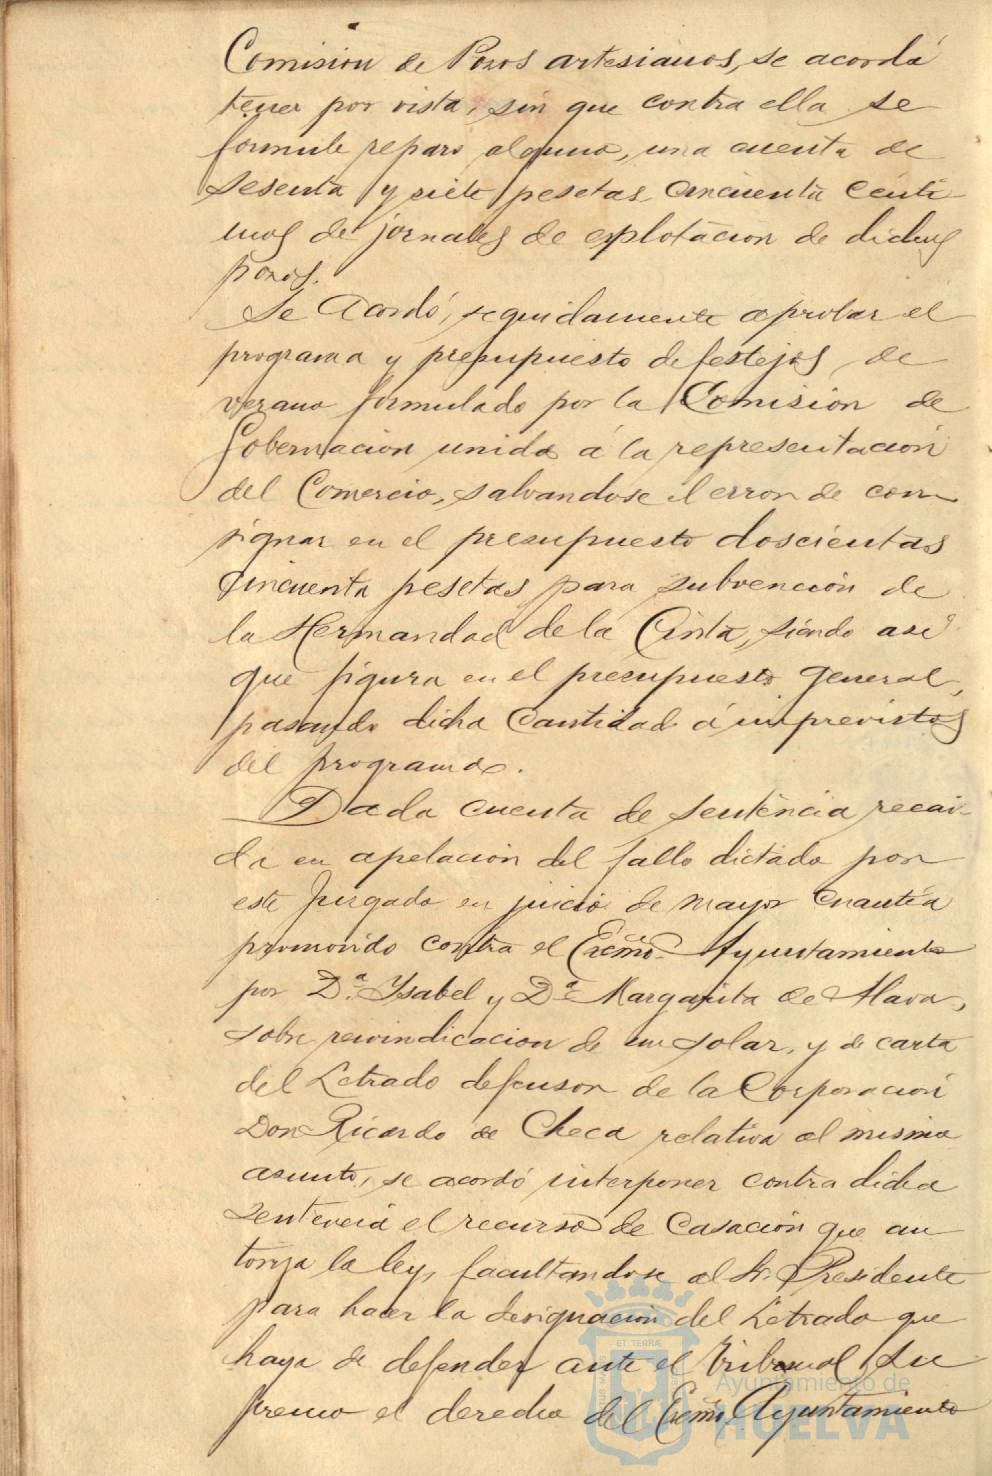 Comisión de Pozos artesianos, se acordó
tener por vista, sin que contra ella se
formule reparo alguno, una cuenta de
sesenta y siete pesetas cincuenta cénti-
mos de jornales de explotación de dichos
pozos.
Se acordó, seguidamente aprobar el
programa y presupuesto de festejos de
verano formulado por la Comisión de
Gobernación unida á la representación
del Comercio, salvandose el error de con-
signar en el presupuesto doscientas
cincuenta pesetas para subvención de
la Hermandad de la Cinta, siendo así
que figura en el presupuesto general,
pasando dicha cantidad á imprevistos
del programa.
Dada cuenta de sentencia recai-
da en apelación del fallo dictado por
este Juzgado en juicio de mayor cuantía
promovido contra el Excmo. Ayuntamiento
por D.ª Ysabel y D.ª Margarita de Alava,
sobre reivindicacion de un solar, y de carta
del Letrado defensor de la Corporación
Don Ricardo de Checa relativa al mismo
asunto, se acordó interponer contra dicha
sentencia el recurso de Casación que au
toriza la ley, facultandose al Sr. Presidente
para hacer la designación del Letrado que
haya de defender ante el Tribunal Su
premo el derecho del Excmo. Ayuntamiento
Ayuntamiento de
HUELVA